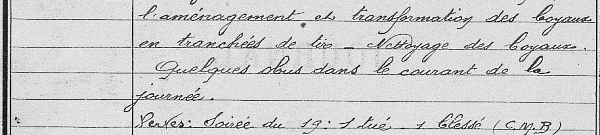 l'aménagement et transformation des boyaux
en tranchées de tir _ Nettoyage des boyaux.
Quelques obus dans le courant de la
journée.
Pertes: Soirée du 19: 1 tué _ 1 blessé (C.M.B)